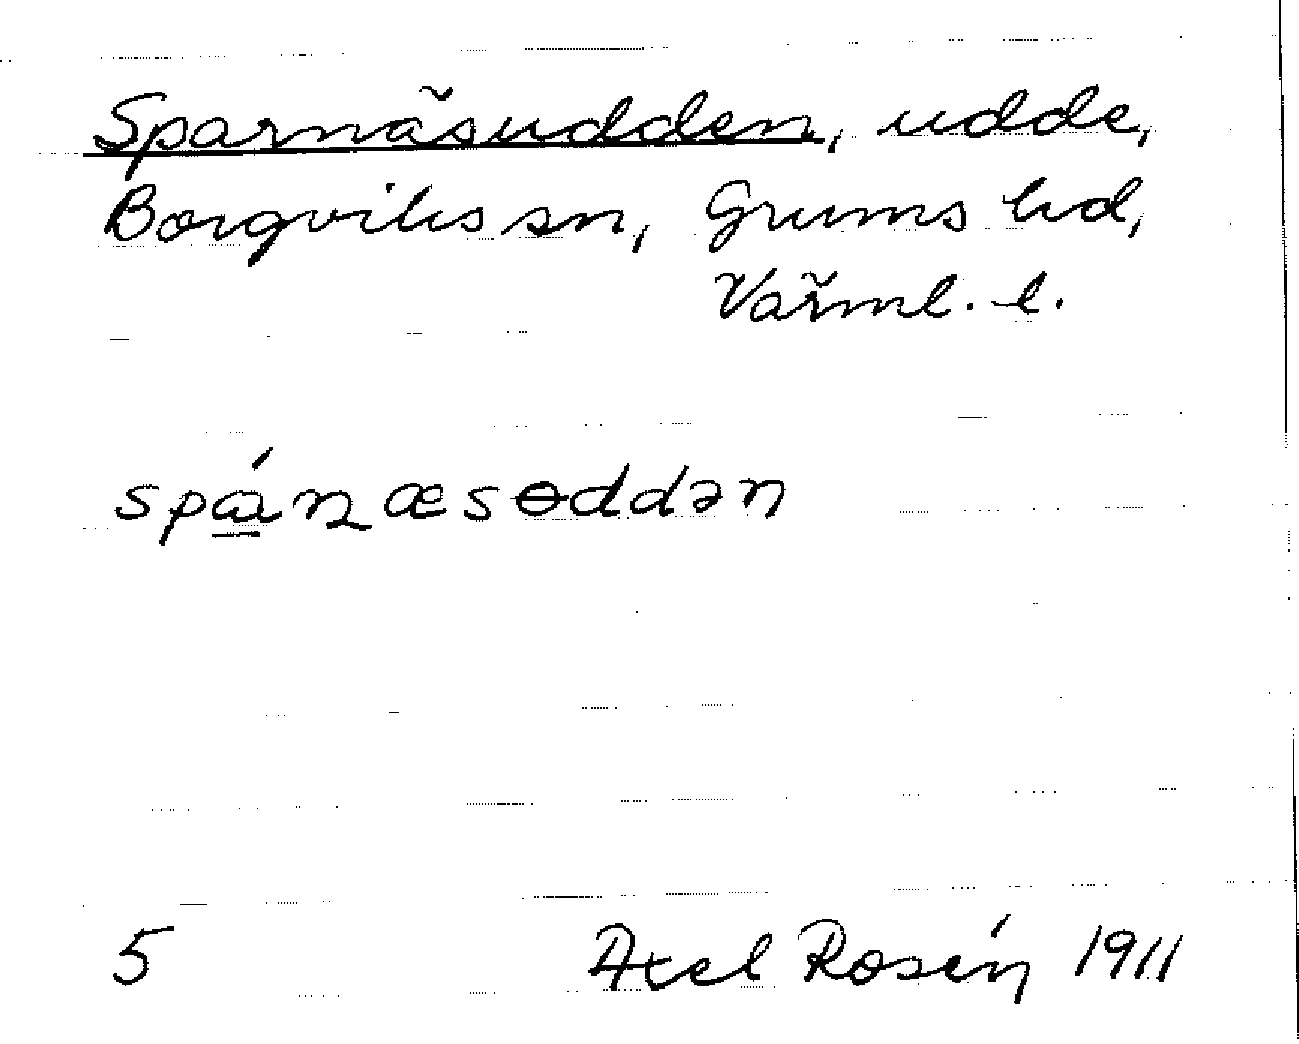 Sparnäsudden, udde,
Borgviks sn, Grums hd,
Värml. l.
spá̱ɳæsɵddən
5 Axel Rosén 1911